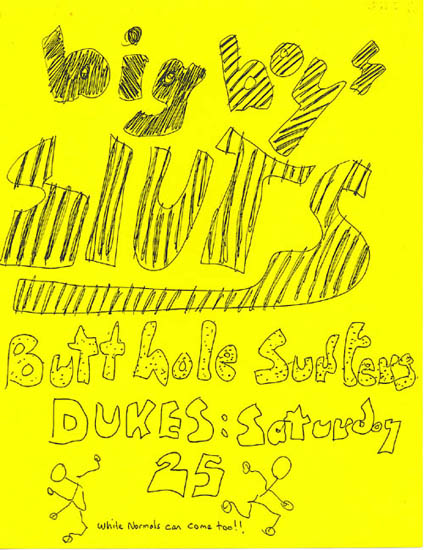 big boys
SLUTS
Butthole Surfers
DUKES: Saturday
25
White Normals can come too!!